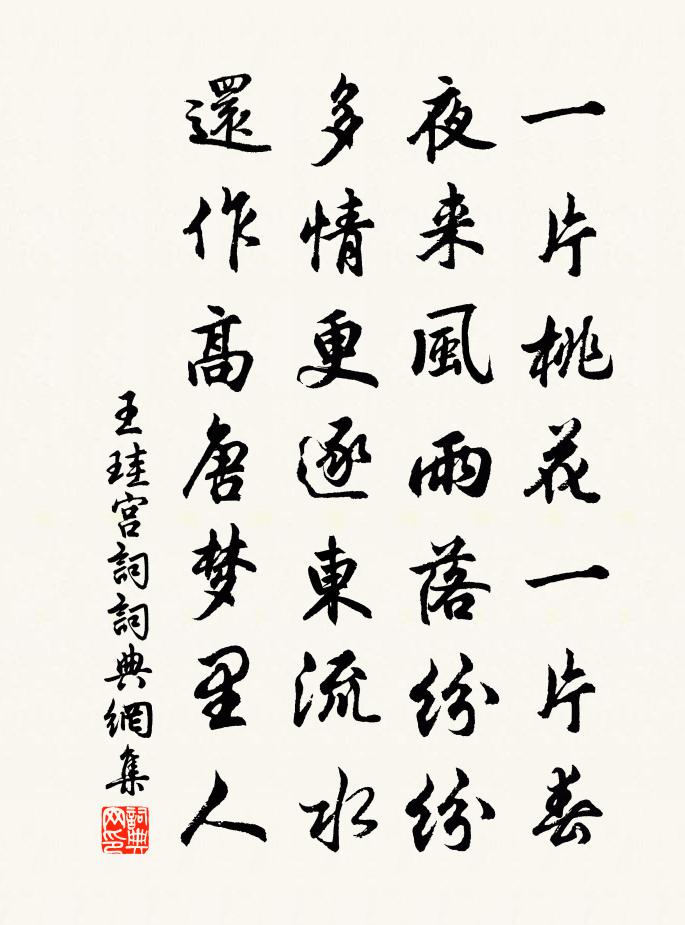 一片桃花一片春
夜来風雨落紛紛
多情更逐東流水
還作高唐梦里人
王珪宫詞詞典網集
詞典网印